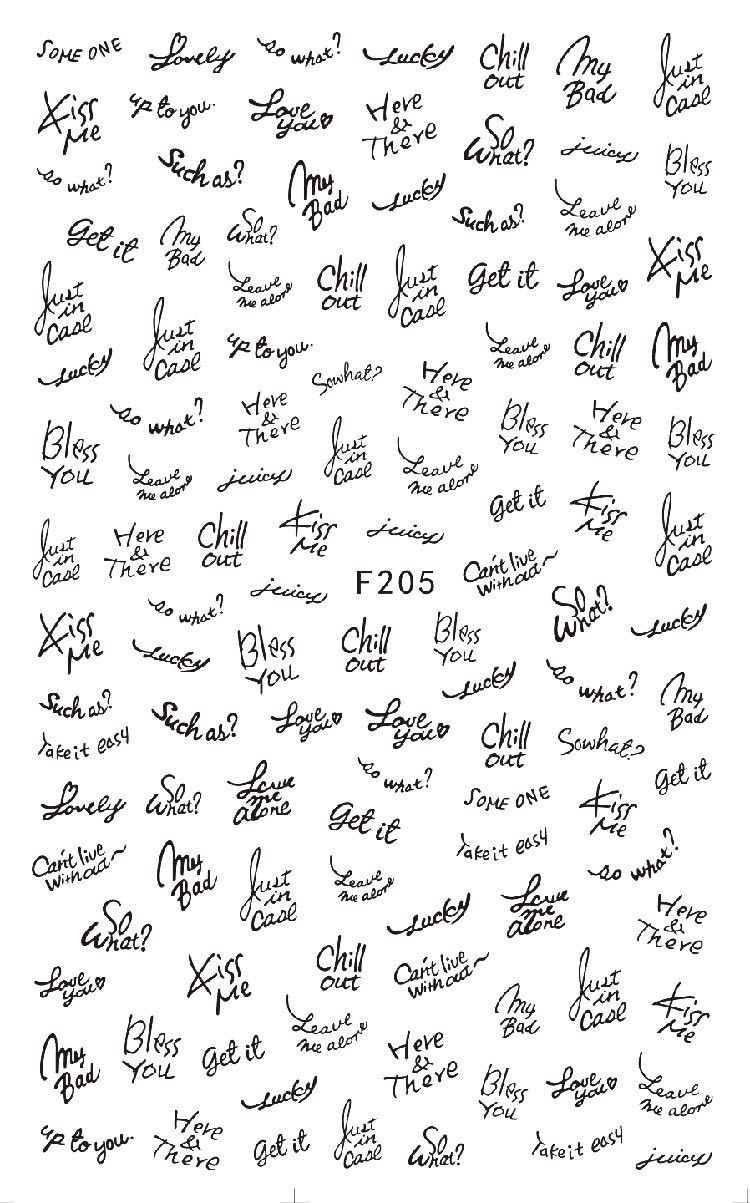 SOME ONE
Lovely
so what?
Lucky
Chill
out
My
Bad
Just
in
Case
Kiss
Me
up to you.
Love
you
Here
&
There
So
What?
juicy
Bless
You
so what?
Such as?
My
Bad
Lucky
Such as?
Leave
me alone
Get it
My
Bad
So
What?
Just
in
Case
Leave
me alone
Chill
out
Just
in
Case
Get it
Love
you
Kiss
Me
Lucky
Just
in
Case
up to you.
Sowhat?
Here
&
There
Leave
me alone
Chill
out
My
Bad
Bless
You
so what?
Here
&
There
Just
in
Case
Bless
You
Here
&
There
Bless
You
Leave
me alone
juicy
Leave
me alone
Get it
Kiss
Me
Just
in
Case
Just
in
Case
Here
&
There
Chill
out
Kiss
Me
juicy
Can't live
without~
so what?
juicy
F205
So
What?
Lucky
Kiss
Me
Lucky
Bless
You
Chill
out
Bless
You
Lucky
so what?
My
Bad
Such as?
Take it easy
Such as?
Love
you
Love
you
Chill
out
Sowhat?
Get it
Lovely
So
What?
Leave
me
alone
so what?
Get it
SOME ONE
Kiss
Me
Take it easy
Can't live
without~
My
Bad
Just
in
Case
Leave
me alone
Lucky
Leave
me
alone
so what?
Here
&
There
So
What?
Love
you
Kiss
Me
Chill
out
Can't live
without~
My
Bad
Just
in
Case
Kiss
Me
My
Bad
Bless
You
Get it
Leave
me alone
Here
&
There
Bless
You
Love
you
Leave
me alone
Lucky
up to you.
Here
&
There
Get it
Just
in
Case
So
What?
Take it easy
juicy